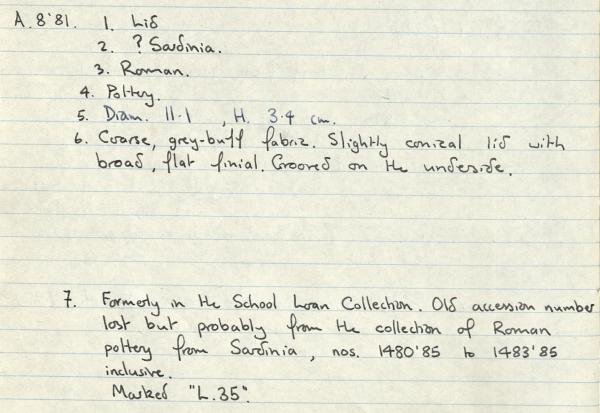 A.8'81. 1. Lid
2. ? Sardinia.
3. Roman.
4. Pottery.
5. Diam. 11.1 , H. 3.4 cm.
6. Coarse, grey-buff fabric. Slightly conical lid with
broad, flat finial. Grooved on the underside.
7. Formerly in the School Loan Collection. Old accession number
lost but probably from the collection of Roman
pottery from Sardinia, nos. 1480'85 to 1483'85
inclusive.
Marked "L.35".